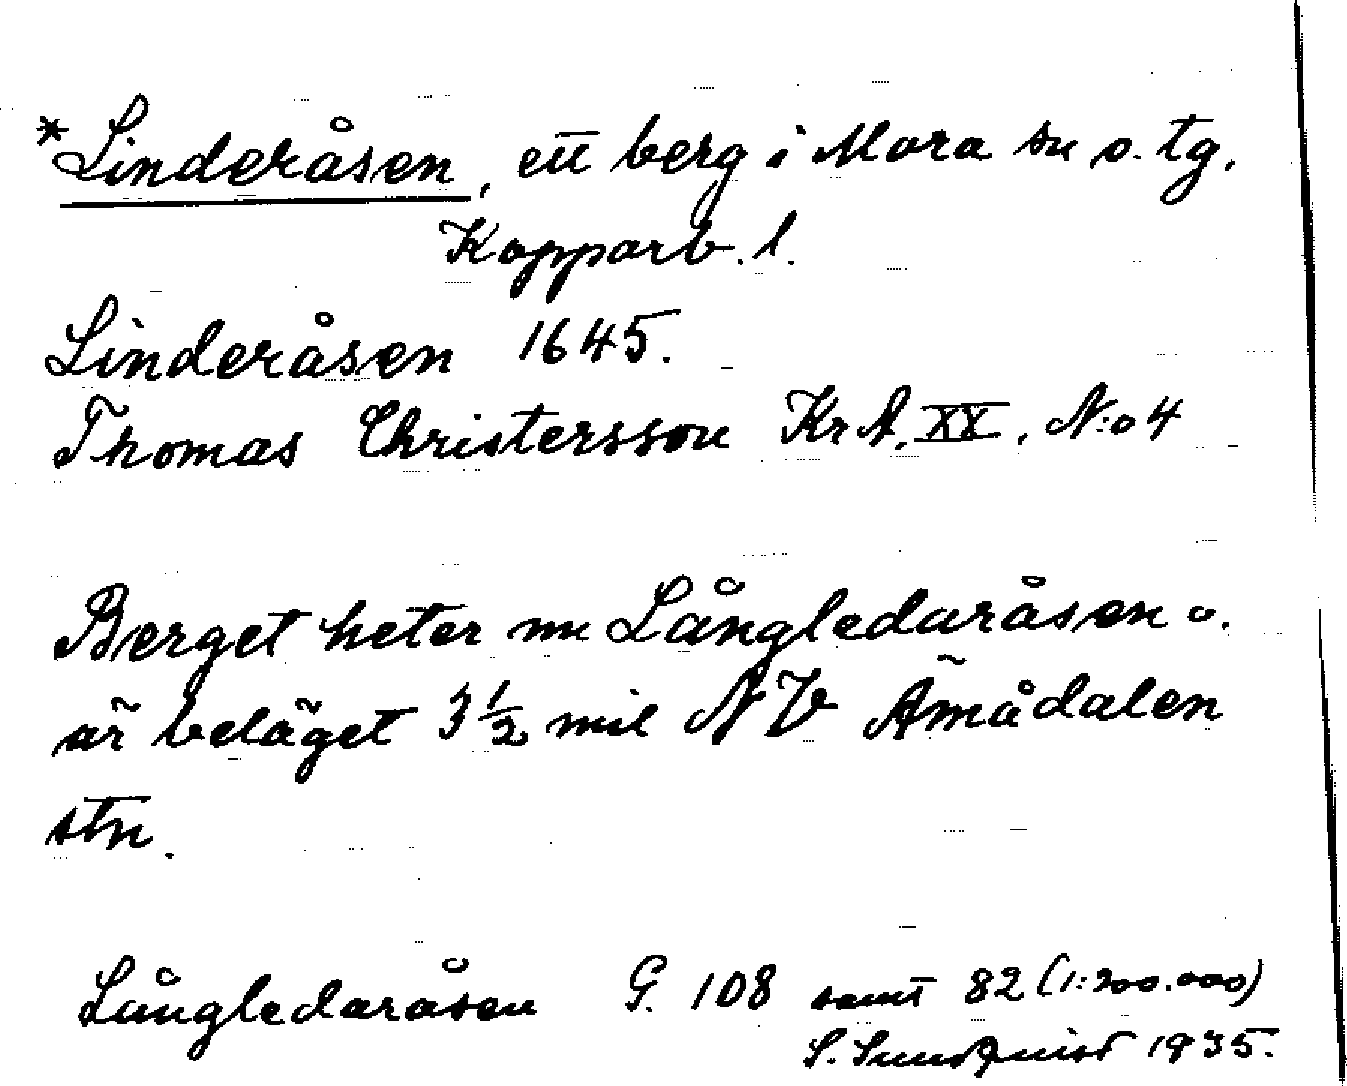 *Linderåsen, ett berg i Mora sn o. tg.
Kopparb. l.
Linderåsen 1645.
Thomas Christersson KrA, XX, N:o 4
Berget heter nu Långledaråsen o.
är beläget 3 1/2 mil NV Ämådalen
stn.
Långledaråsen G. 108 samt 82 (1:200.000)
S. Sundquist 1935.